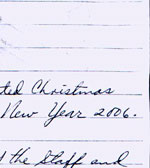 ted Christmas
New Year 2006.
the Staff and